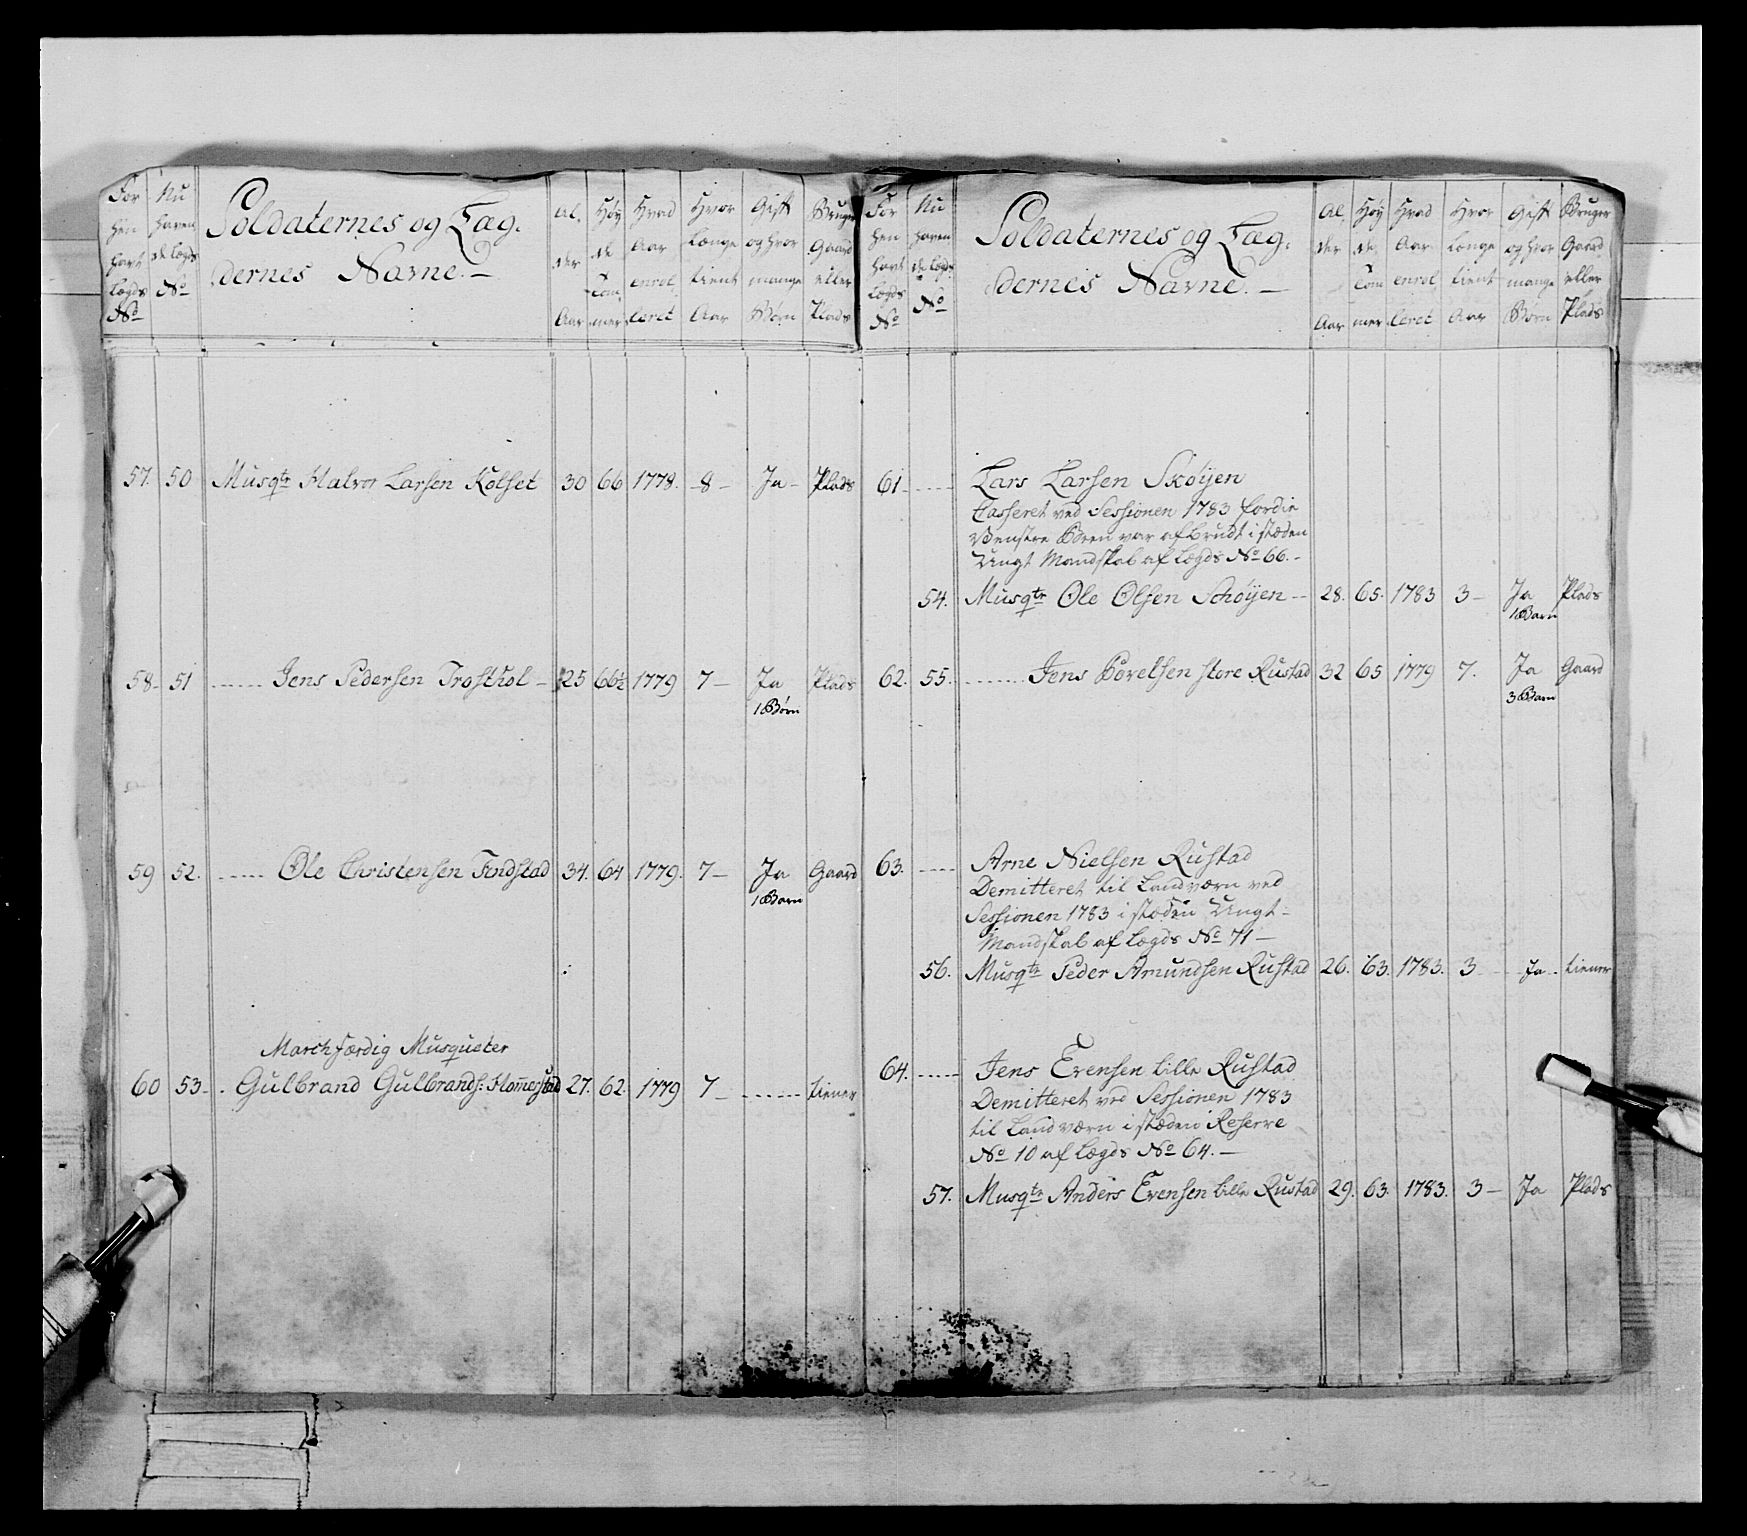 For hen havt Lægds No
Nu haven de Lægds No
Soldaternes og Læg-
dernes Navne. —
Al. der Aar
Høy de Tom mer
Hvad Aar enrol leret
Hvor Længe tient Aar
Gift og hvor mange Børn
Bruger Gaard eller Plads
57. 50 Musqtr Halvor Larsen Kolset 30 66 1778. 8 – Ja – Plads
58 – 51 ...... Jens Pedersen Trosthol – 25 66½ 1779 7 – Ja Plads
1 Børn
59 52. ...... Ole Christensen Findstad 34. 64 1779. 7 – Ja Gaard
1 Barn
Marchfærdig Musqueter
60 53 – . Gulbrand Gulbrands: Homerstad 27. 62. 1779 7 – ....... tiener
For hen havt Lægds No
Nu haven de Lægds No
Soldaternes og Læg-
dernes Navne. —
Al. der Aar
Høy de Tom mer
Hvad Aar enrol leret
Hvor Længe tient Aar
Gift og hvor mange Børn
Bruger Gaard eller Plads
61 – ..... Lars Larsen Skøyen
Casseret ved Sessionen 1783 fordie
Venstre Been var afbrudt i stæden
Ungt Mandskab af Lægds No 66. –
54. Musqtr Ole Olsen Schøyen – 28. 65. 1783 3 – Ja Plads
1 Barn
62. 55. ....... Jens Povelsen store Rustad 32 65 1779 7. Ja Gaard
3 Barn
63. ..... Arne Nielsen Rustad
Demitteret til Landværn ved
Sessionen 1783 i stæden Ungt
Mandskab af Lægds No 71 –
56. Musqtr Peder Amundsen Rustad 26. 63. 1783. 3 – Ja – tiener
64. ...... Jens Evensen Lille Rustad
Demitteret ved Sessionen 1783
til Landværn i stæden Reserve
No 10 af Lægds No 64. —
57. Musqtr Anders Evensen Lille Rustad 29. 63. 1783. 3 – Ja Plads